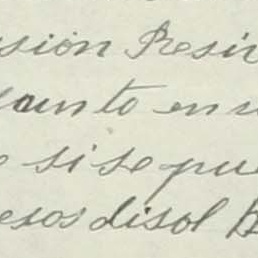 sion Presi
to en
e si se pue
esos disol B